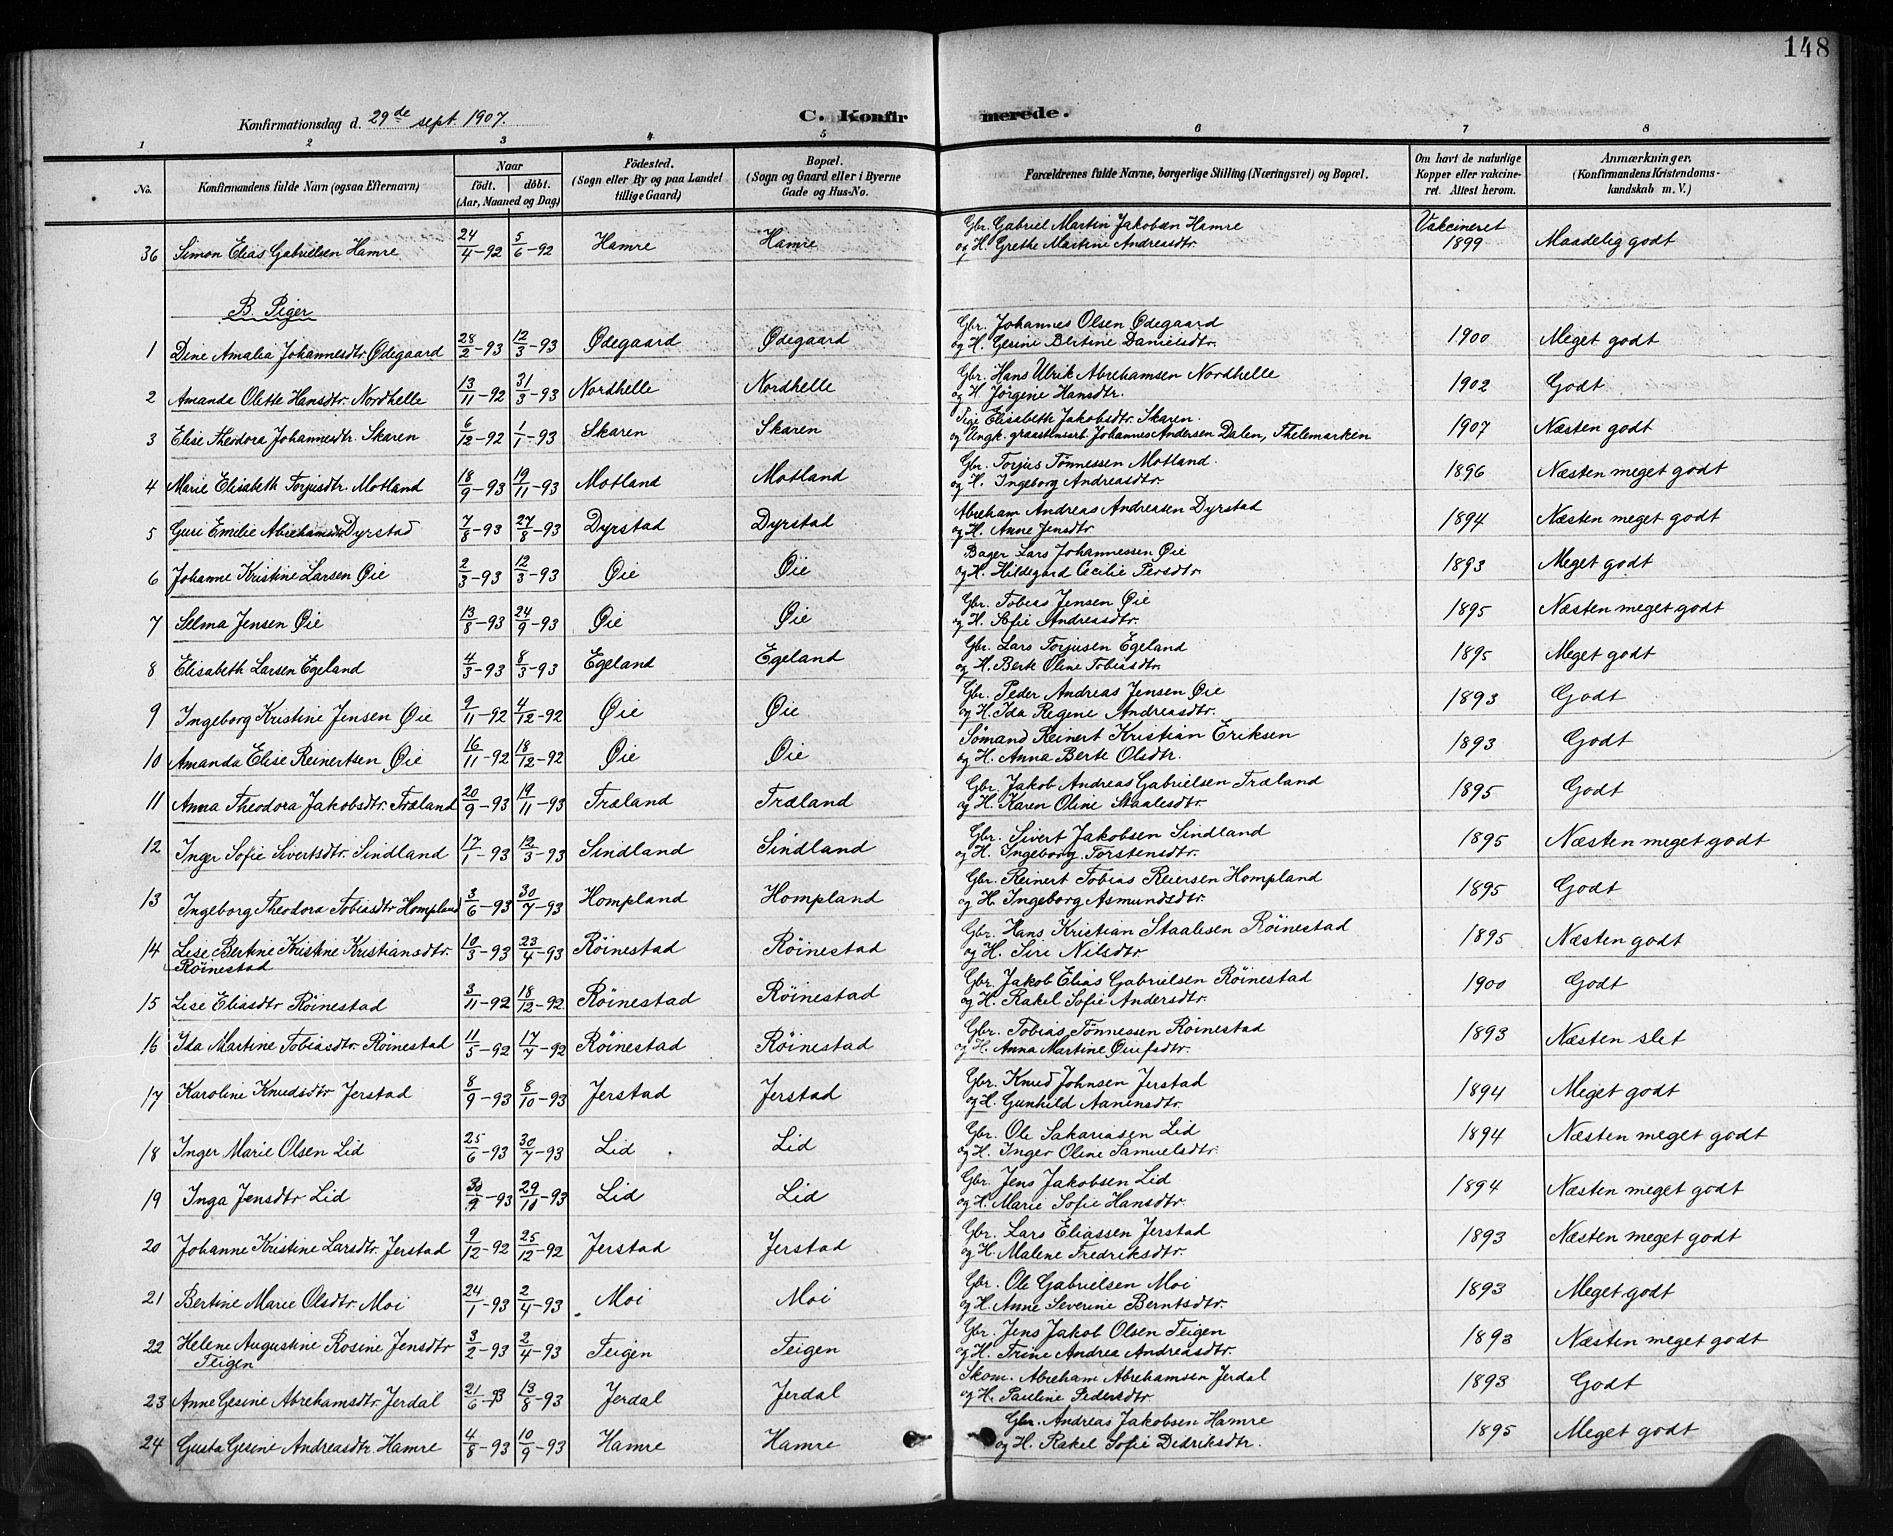 148
Konfirmationsdag d. 29de sept. 1907.
C. Konfirmerede.
1 2 3 4 5 6 7 8
No. | Konfirmandens fulde Navn (ogsaa Efternavn) | Naar födt. döbt. (Aar, Maaned og Dag) | Födested. (Sogn eller By og paa Landet tillige Gaard) | Bopæl. (Sogn og Gaard eller i Byerne Gade og Hus-No. | Forældrenes fulde Navne, borgerlige Stilling (Næringsvei) og Bopæl. | Om havt de naturlige Kopper eller vakcineret. Attest herom. | Anmærkninger. (Konfirmandens Kristendomskundskab m. V.)
36 Simon Elias Gabrielsen Hamre 24/4-92 5/6-92 Hamre Hamre Gbr. Gabriel Martin Jakobsen Hamre Vakcineret 1899 Maadelig godt
og H. Grethe Martine Andreasdtr.
B. Piger
1 Dine Amalia Johannesdtr. Ødegaard 28/2-93 12/3-93 Ødegaard Ødegaard Gbr. Johannes Olsen Ødegaard 1900 Meget godt
og H. Gesine Bertine Danielsdtr.
2 Amanda Olette Hansdtr. Nordhelle 13/11-92 31/3-93 Nordhelle Nordhelle Gbr. Hans Ulrik Abrehamsen Nordhelle 1902 Godt
og H. Jörgine Hansdtr.
3 Elise Theodora Johannesdtr. Skaren 6/12-92 1/1-93 Skaren Skaren Pige Elisabeth Jakobsdtr. Skaren. 1907 Næsten godt
og Ungk. graastensarb. Johannes Andersen Dalen, Thelemarken
4 Marie Elisabeth Torjusdtr. Motland 18/9-93 19/11-93 Motland Motland Gbr. Torjus Tönnessen Motland. 1896 Næsten meget godt
og H. Ingeborg Andreasdtr.
5 Guri Emilie Abrehamsdtr Dyrstad 7/8-93 27/8-93 Dyrstad Dyrstad Abreham Andreas Andreasen Dyrstad 1894 Næsten meget godt
og H. Anne Jensdtr.
6 Johanne Kristine Larsen Øie 2/3-93 12/3-93 Øie Øie Bager Lars Johannessen Øie 1893 Meget godt
og H. Hildegard Cecilie Persdtr.
7 Selma Jensen Øie 13/8-93 24/9-93 Øie Øie Gbr. Tobias Jensen Øie 1895 Næsten meget godt
og H. Sofie Andreasdtr.
8 Elisabeth Larsen Egeland 4/3-93 8/3-93 Egeland Egeland Gbr. Lars Torjusen Egeland 1895 Meget godt
og H. Berte Oline Tobiasdtr.
9 Ingeborg Kristine Jensen Øie 9/11-92 4/12-92 Øie Øie Gbr. Peder Andreas Jensen Øie 1893 Godt
og H. Ida Regine Andreasdtr.
10 Amanda Elise Reinertsen Øie 16/11-92 18/12-92 Øie Øie Sömand Reinert Kristian Eriksen 1893 Godt
og H. Anna Berte Olsdtr.
11 Anna Theodora Jakobsdtr. Træland 20/9-93 19/11-93 Træland Træland Gbr. Jakob Andreas Gabrielsen Træland 1895 Godt
og H. Karen Oline Staalesdtr.
12 Inger Sofie Sivertsdtr. Sindland 17/1-93 12/3-93 Sindland Sindland Gbr. Sivert Jakobsen Sindland 1895 Næsten meget godt
og H. Ingeborg Torstensdtr.
13 Ingeborg Theodora Tobiasdtr Hompland 3/6-93 30/7-93 Hompland Hompland Gbr. Reinert Tobias Reiersen Hompland 1895 Godt
og H. Ingeborg Asmundsdtr.
14 Lise Bertine Kristine Kristiansdtr. 10/3-93 23/4-93 Röinestad Röinestad Gbr. Hans Kristian Staalesen Röinestad 1895 Næsten godt
Röinestad og H. Siri Nilsdtr.
15 Lise Eliasdtr Röinestad 3/11-92 18/12-92 Röinestad Röinestad Gbr. Jakob Elias Gabrielsen Röinestad 1900 Godt
og H. Rakel Sofie Andersdtr.
16 Ida Martine Tobiasdtr. Röinestad 11/5-92 17/7-92 Röinestad Röinestad Gbr. Tobias Tönnessen Röinestad 1893 Næsten slet
og H. Anna Martine
17 Karoline Knudsdtr Jerstad 8/9-93 8/10-93 Jerstad Jerstad Gbr. Knud Johnsen Jerstad 1894 Meget godt
og H. Gunhild Aanensdtr.
18 Inger Marie Olsen Lid 25/6-93 30/7-93 Lid Lid Gbr. Ole Sakariasen Lid 1894 Næsten meget godt
og H. Inger Oline Samuelsdtr.
19 Inga Jensdtr Lid 30/9-93 29/10-93 Lid Lid Gbr. Jens Jakobsen Lid 1894 Næsten meget godt
og H. Marie Sofie Hansdtr.
20 Johanne Kristine Larsdtr. Jerstad 9/12-92 25/12-92 Jerstad Jerstad Gbr. Lars Eliassen Jerstad 1893 Næsten meget godt
og H. Malene Fredriksdtr.
21 Bertine Marie Olsdtr. Moi 24/1-93 2/4-93 Moi Moi Gbr. Ole Gabrielsen Moi 1893 Meget godt
og H. Anne Severine Berntsdtr.
22 Helene Augustine Rosine Jensdtr 3/2-93 2/4-93 Teigen Teigen Gbr. Jens Jakob Olsen Teigen 1893 Næsten meget godt
Teigen og H. Trine Andrea Andreasdtr.
23 Anne Gesine Abrehamsdtr. Jerdal 21/6-93 13/8-93 Jerdal Jerdal Skom. Abreham Abrehamsen Jerdal 1893 Godt
og H. Pauline Pedersdtr.
24 Gusta Gesine Andreasdtr. Hamre 4/8-93 10/9-93 Hamre Hamre Gbr. Andreas Jakobsen Hamre 1895 Meget godt
og H. Rakel Sofie Didriksdtr.